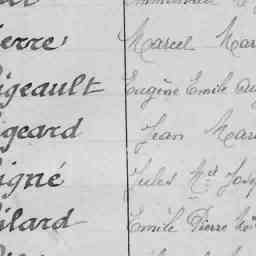 ierre Marcel Mar
igeault Eugène Emile Au
igeard Jean Mar
igné Jules Mel Jose
ilard Emile Pierre